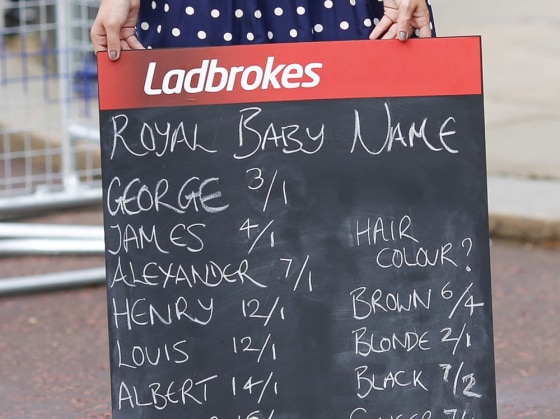 Ladbrokes
ROYAL BABY NAME
GEORGE 3/1
JAMES 4/1
ALEXANDER 7/1
HENRY 12/1
LOUIS 12/1
ALBERT 14/1
HAIR
COLOUR?
BROWN 6/4
BLONDE 2/1
BLACK 7/2